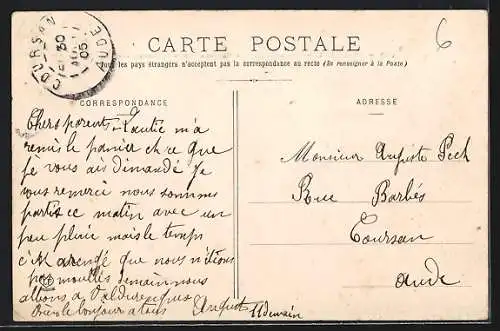 COURSAN
30
05
AUDE
6
CARTE POSTALE
Tous les pays étrangers n'acceptent pas la correspondance au recto (Se renseigner à la Poste)
CORRESPONDANCE
Chers parents
remis le panier et ce que
je vous ais dimandé Je
vous remerci nous sommes
partis ce matin avec un
peu pluie mais le temps
c'et arengé que nous n'étions
pas mouillés demain nous
allons à
bonjour a tous
ADRESSE
Monsieur Auguste Pech
Rue Barbés
Coursan
Aude